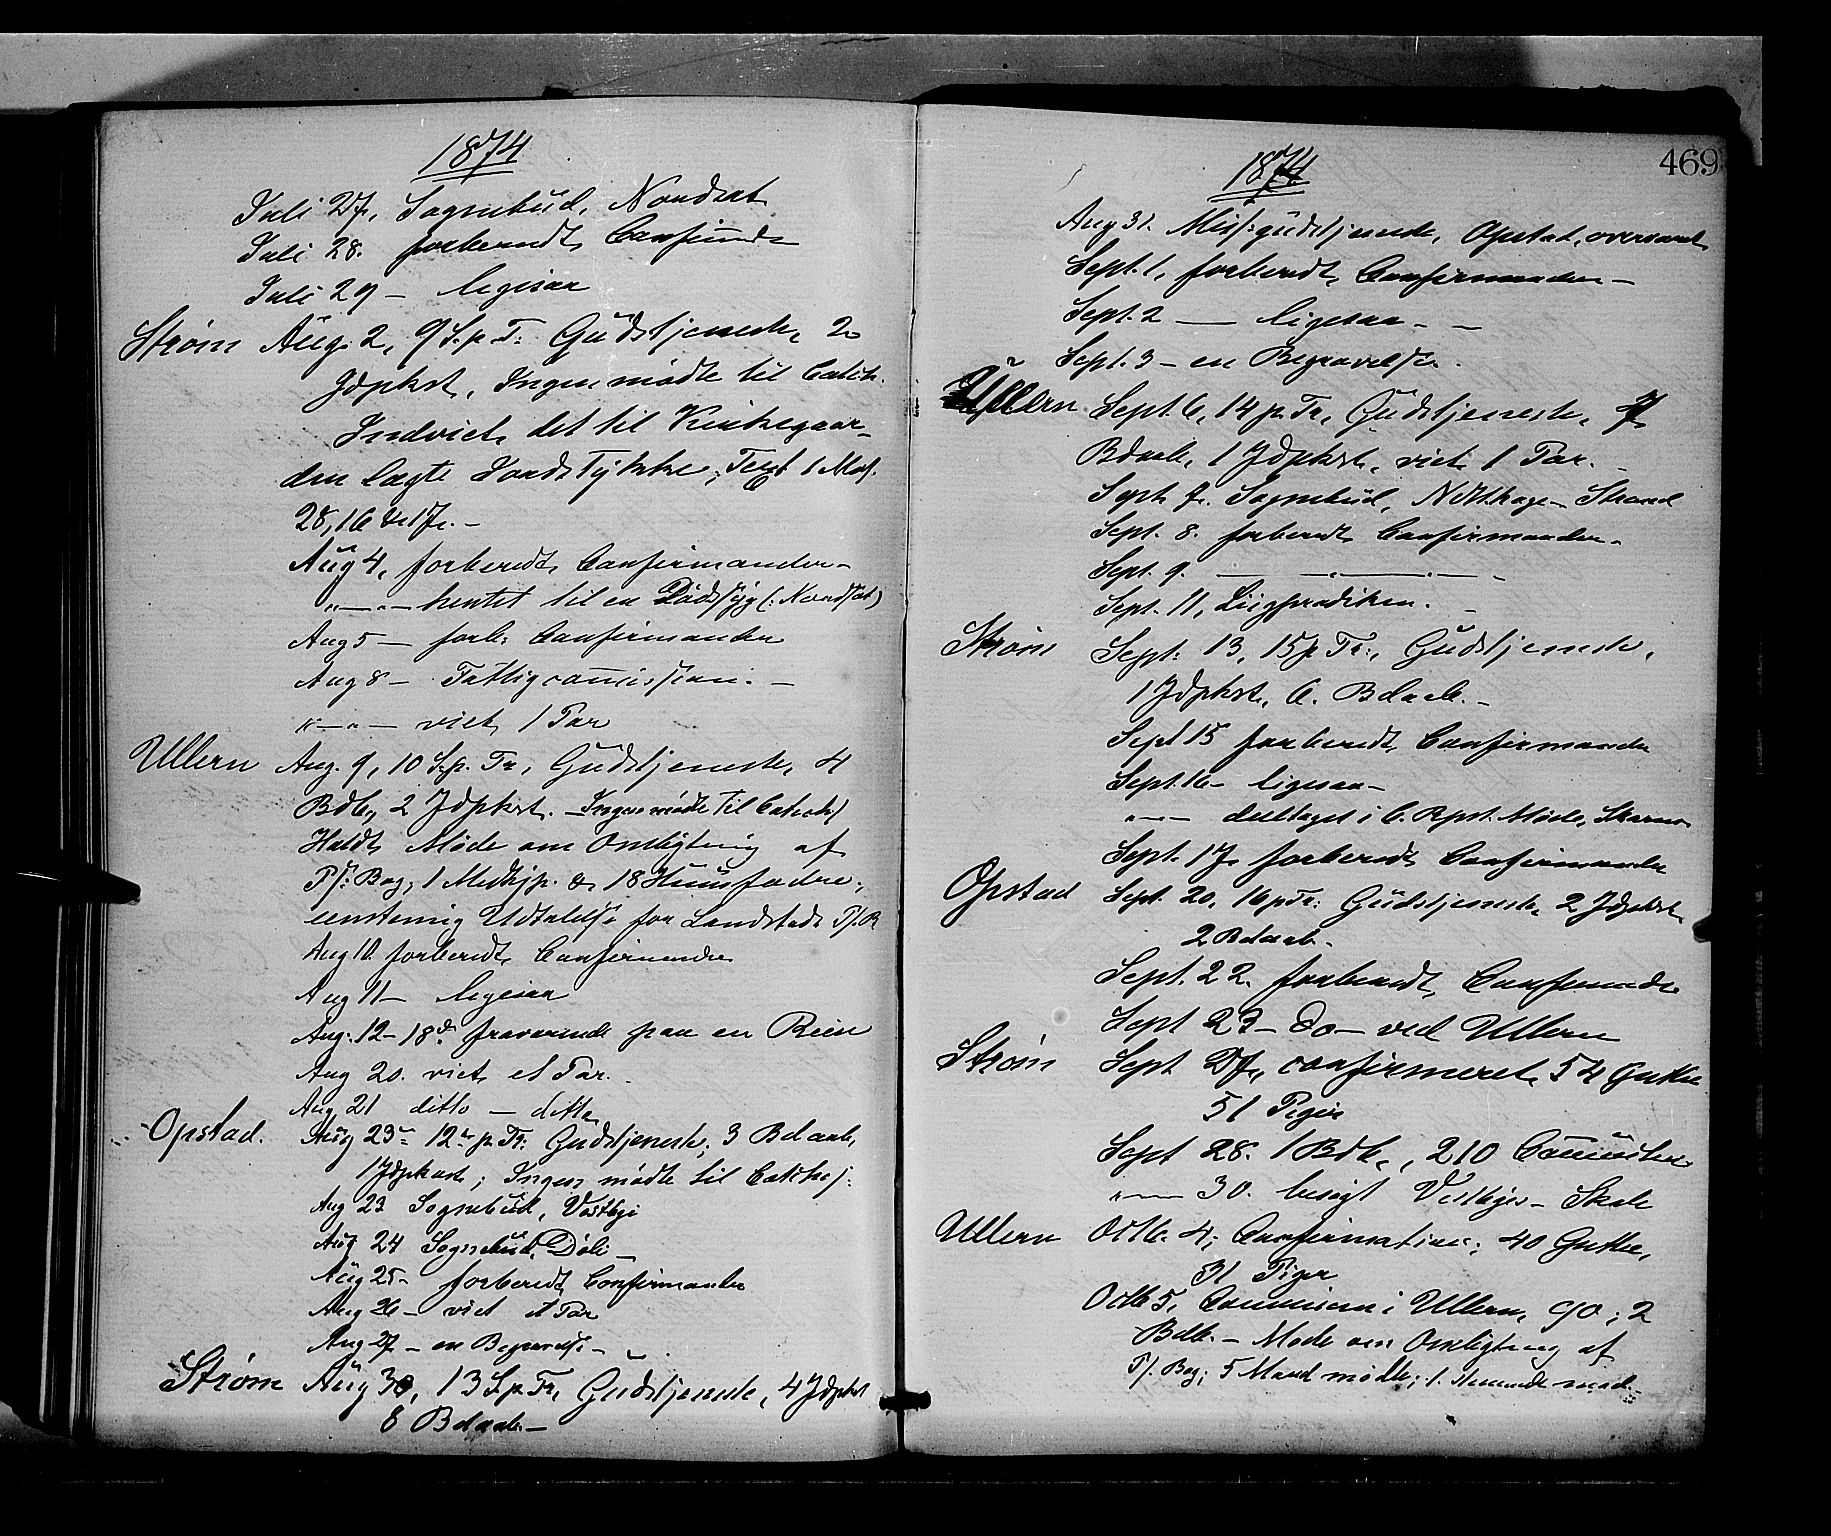 1874
Juli 27, Sognebud, Nordset
Juli 28. forberedt, Confirmder
Juli 29 — ligesaa
Strøm Aug. 2, 9 S. p. T: Gudstjeneste, 2
Jdpkst, Ingen mødte til Catch.
Indviet det til Kirkegaar-
den lagte Jordstykke; Text 1 Mos.
28, 16 & 17. –
Aug 4, forberedt, Confirmander –
" — " — hentet til en Dødssyg (: Nordset)
Aug 5 — forb: Confirmander
Aug 8 – Fattigcommission. –
" — " — viet, 1 Par
Ullern Aug. 9, 10 S. p. Tr, Gudstjeneste, 4
Bdb, 2 Jdpkst. – Ingen mødte til Catech/
Holdt Møde om Ombytning af
Ps: Bog, 1 Medhjp. & 18 Huusfædre;
eenstemig Udtalelse for Landstads Ps. B
Aug 10. forberedt, Confirmander
Aug 11 – ligesaa
Aug. 12 – 18de fraværende paa en Reise
Aug 20. viet, et Par.
Aug 21 ditto — ditto
Opstad. Aug 23 12 p. Tr: Gudstjeneste; 3 Bdaab,
1 Jdpkst; Ingen mødte til Catech:
Aug 23 Sognebud, Vestbye
Aug 24 Sognebud, Döli –
Aug 25 – forberedt, Confirmander
Aug 26 – viet et Par
Aug 27 – en Begravelse –
Strøm Aug 30, 13 S. p. Tr, Gudstjeneste, 4 Jdpkst
8 Bdaab. –
469
1874
Aug 31. Miss: gudstjeneste, Opstad,
Sept. 1, forberedt, Confirmander –
Sept. 2 — ligesaa. –
Sept. 3 – en Begravelse.
Ullern Sept. 6, 14 p. Tr, Gudstjeneste, 7
Bdaab, 1 Jdpkst, viet 1 Par.
Sept. 7. Sognebud, Strand
Sept. 8. forberedt, Confirmander –
Sept. 9. — " — " —
Sept. 11, Liigprædiken. –
Strøm Sept: 13, 15 p Tr:, Gudstjeneste,
1 Jdpkst, 6. Bdaab. –
Sept 15 forberedt, Confirmander
Sept. 16 – ligesaa –
" — deeltaget i C. Rpst. Møde, Skarnes
Sept. 17. forberedt Confirmander
Opstad Sept. 20, 16 p Tr: Gudstjeneste, 2 Jdpkst,
2 Bdaab. –
Sept. 22. forberedt, Confirmander
Sept 23 – do – ved Ullern
Strøm Sept 27, confirmeret, 54 Gutter
51 Piger
Sept 28. 1 Bdb, 210 Communic
" — 30. besøgt Vestbyes – Skole
Ullern Octb. 4; Confirmation; 40 Gutter,
31 Piger
Octb 5, Communion i Ullern, 90; 2
Bdb. – Møde om Ombytning af
Ps. Bog; 5 Mand mødte; 1. Stemmede mod.